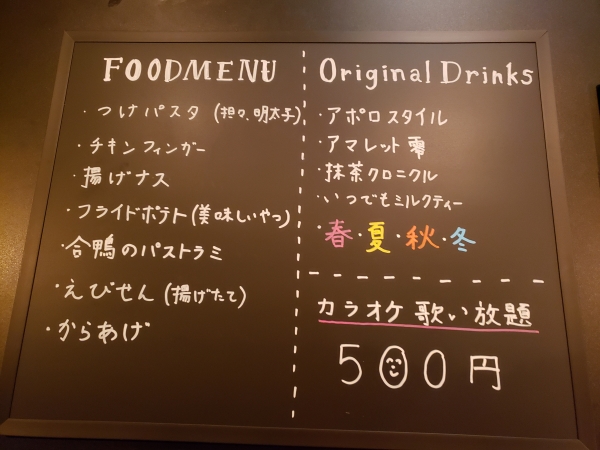 FOODMENU
・つけパスタ (担々、明太子)
・チキンフィンガー
・揚げナス
・フライドポテト(美味しいやつ)
・合鴨のパストラミ
・えびせん (揚げたて)
・からあげ
Original Drinks
・アポロスタイル
・アマレット雫
・抹茶クロニクル
・いつでもミルクティー
・春・夏・秋・冬
カラオケ 歌い放題
500円